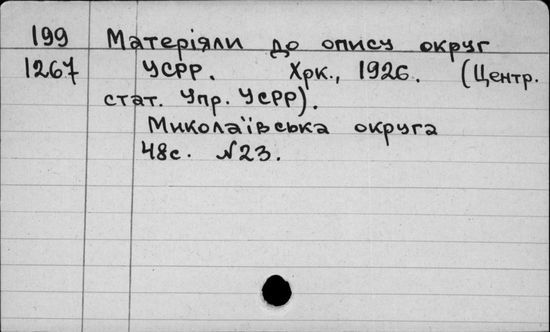 199 Матеріяли до опису округ
1267 УСРР. Хрк., 1926. (Центр.
стат. Упр. УСРР).
Миколаївська округа
48с. №23.